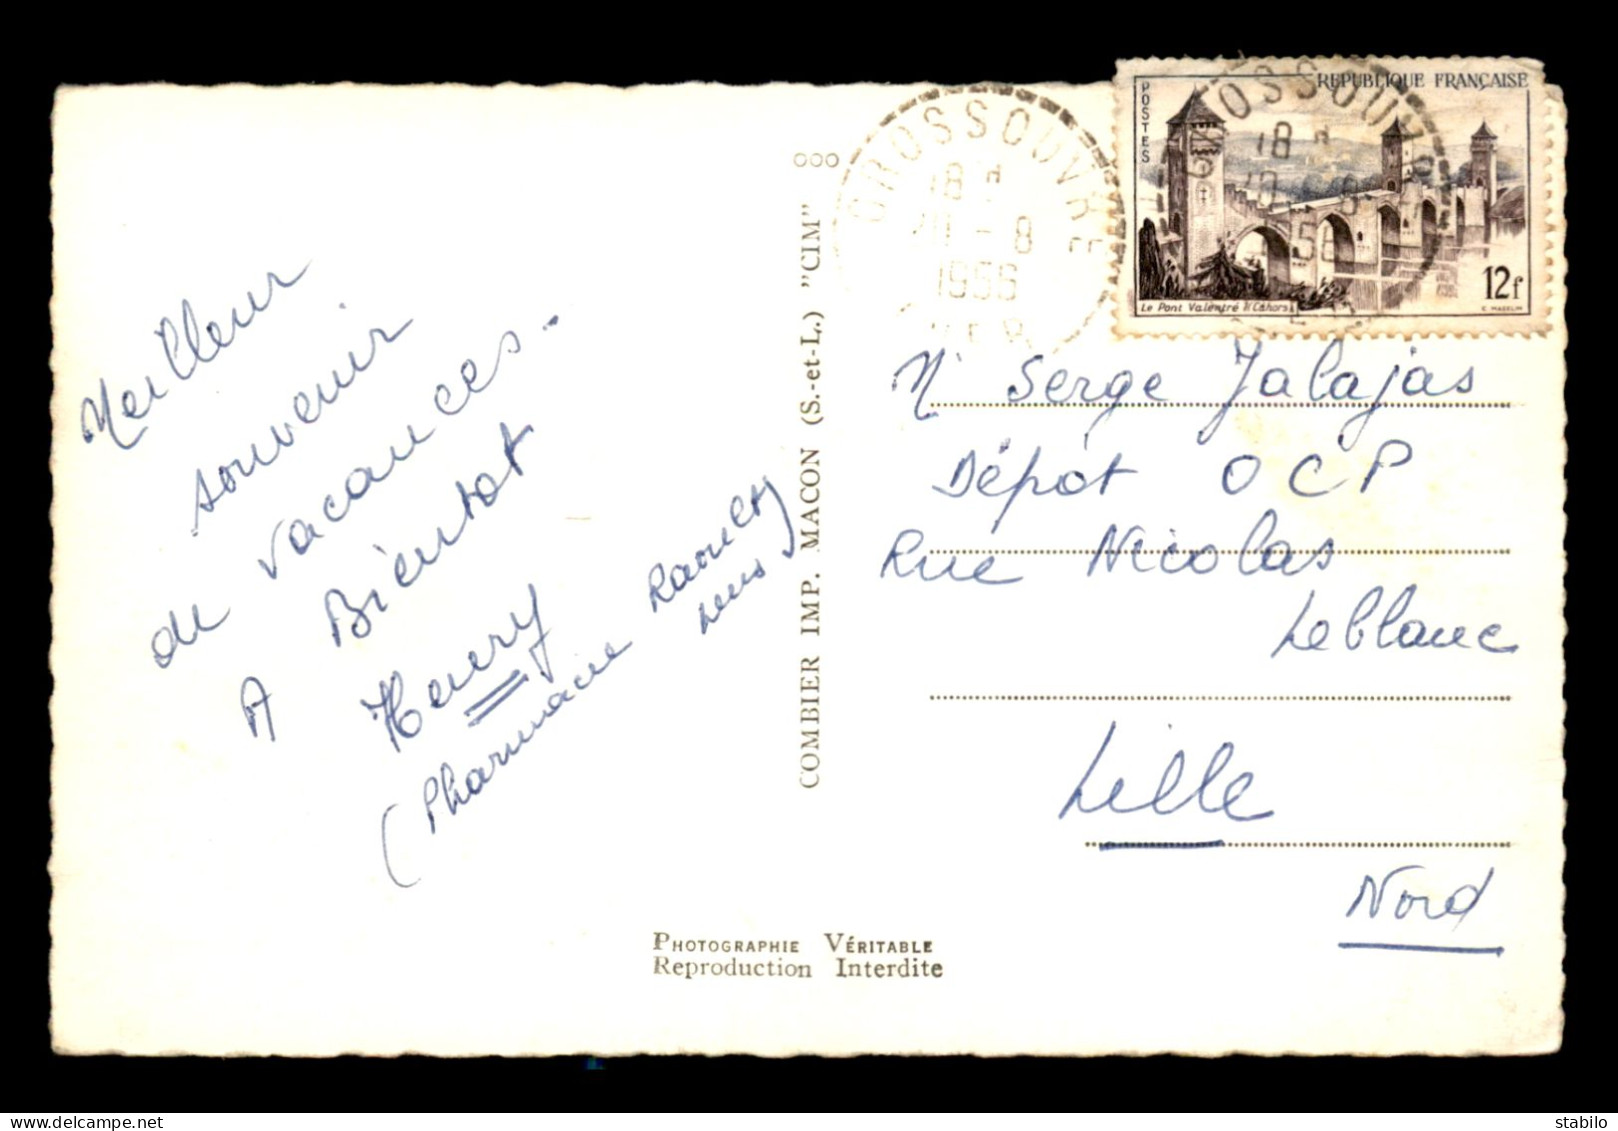 Meilleur
souvenir
de vacances..
A Bientot
Henry
(Pharmacie Raoult
Lens)
COMBIER IMP. MACON (S.-et-L.) "CIM"
PHOTOGRAPHIE VÉRITABLE
Reproduction Interdite
GROSSOUVRE
18 H
8
1956
CHER
GROSSOUVRE
18 H
POSTES
REPUBLIQUE FRANÇAISE
12f
Le Pont Valentré à Cahors
Mr Serge Jalajas
Dépôt OCP
Rue Nicolas
Leblanc
Lille
Nord
delcampe.net
stabilo